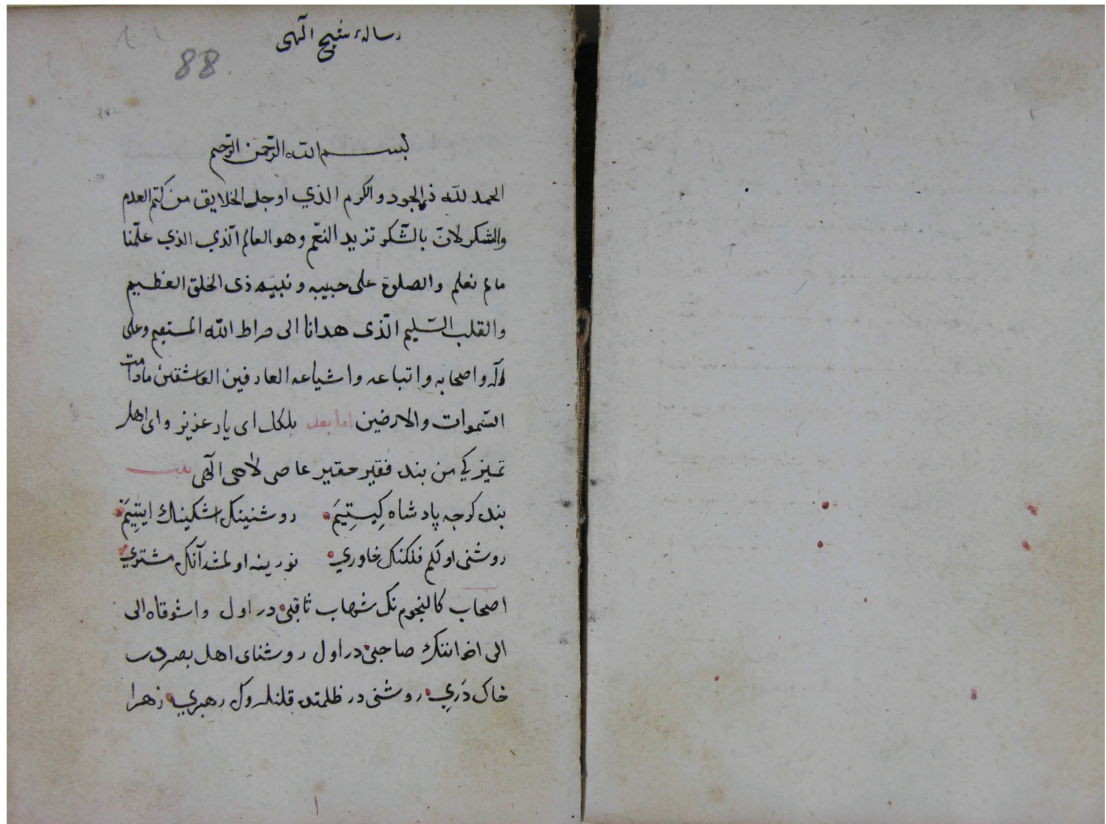 رسالهٔ شیخ الهی
88
بسم الله الرحمن الرحيم
الحمد لله ذي الجود والكرم الذي اوجد الخلايق من كتم العدم
والشكر لانّ بالشّكر تزيد النعّم وهو العالم الّذي الذي علّمنا
مالم نعلم والصلوة على حبيبه ونبيّه ذى الخلق العظيم
والقلب السّليم الّذى هدانا الى صراط الله المستقيم وعلى
اله واصحابه واتباعه واشياعه العارفين العاشقين مادامت
السّموات والارضين اما بعد بلكل اى يار عزيز واى اهل
تميز كه من بنده فقير حقير عاصى الهى بيت
بنده كرچه پادشاه كيستيم روشنينك اشكينك ايتيم
روشنى اولكم فلكنك خاوري نورينه اولمشدر آنك مشتري
اصحاب كالنجوم نك شهاب ثاقبى در اول واشوقاه الى
الى اخوانتك صاحبى در اول روشناى اهل بصردر
خاك دري روشنى در ظلمتده رهبري زهرا